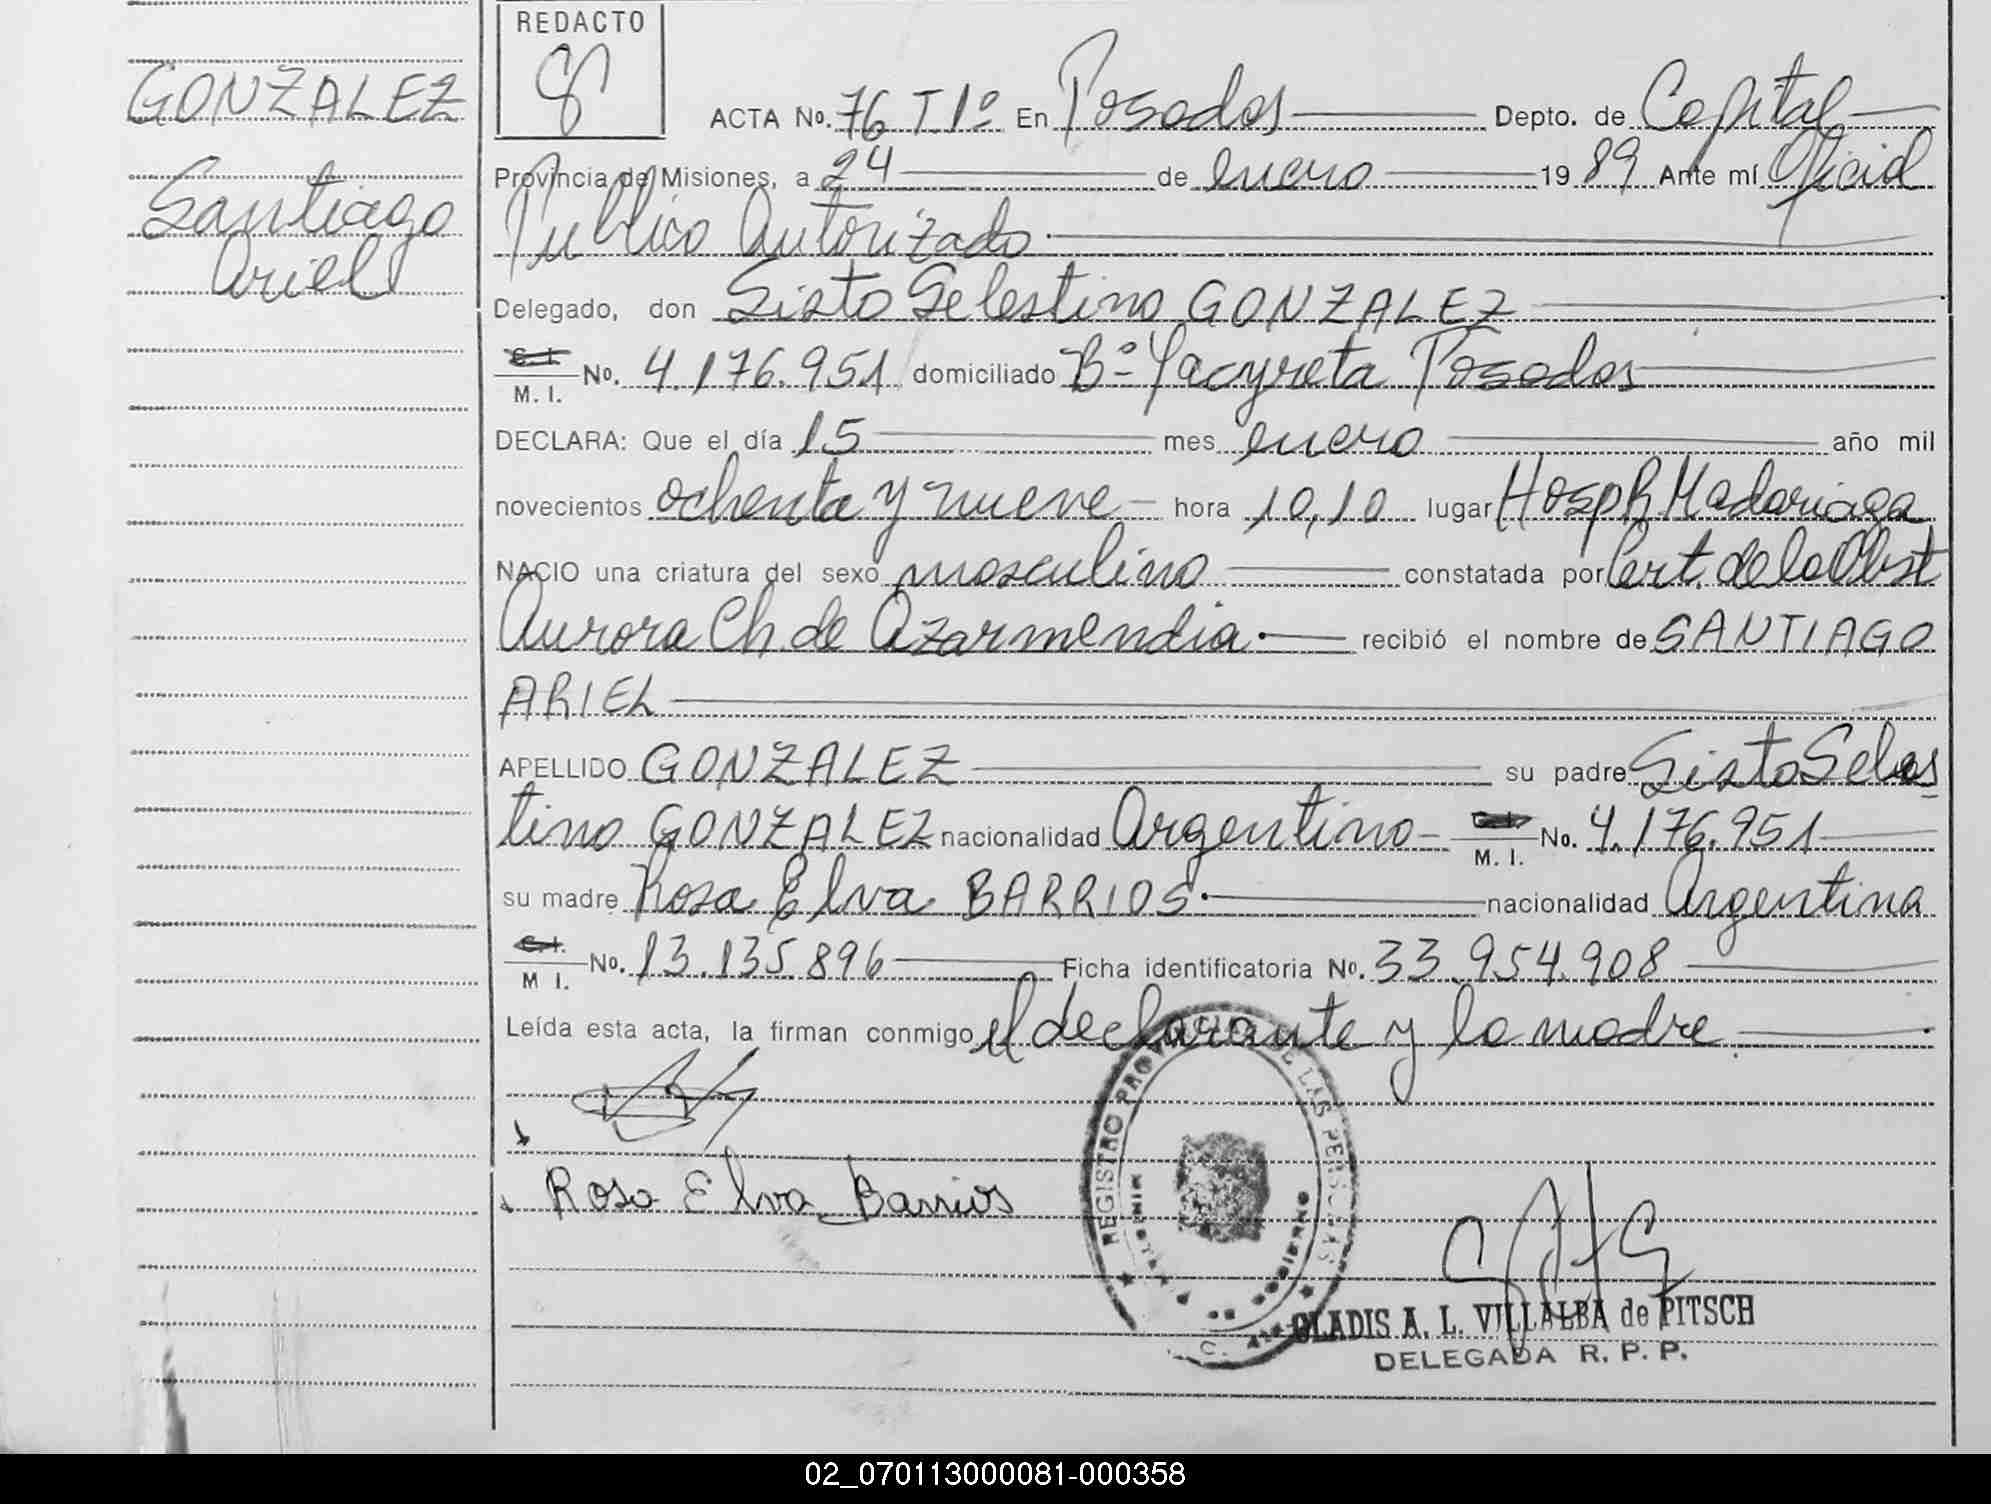 GONZALEZ
Santiago
Ariel
REDACTO
ACTA No. 76 T.1º En Posadas Depto. de Capital
Provincia de Misiones, a 24 de enero 1989 Ante mí Oficial
Publico Autorizado
Delegado, don Sixto Selestino GONZALEZ
C. I.
M. I. No. 4.176.951 domiciliado Bº Yacyreta Posadas
DECLARA: Que el día 15 mes enero año mil
novecientos ochenta y nueve hora 10,10 lugar Hosp R Madariaga
NACIO una criatura del sexo masculino constatada por Cert. de la Obst
Aurora Ch. de Azarmendia recibió el nombre de SANTIAGO
ARIEL
APELLIDO GONZALEZ su padre Sixto Seles
tino GONZALEZ nacionalidad Argentino C. I.
M. I. No. 4.176.951
su madre Rosa Elva BARRIOS nacionalidad Argentina
C. I.
M I. No. 13.135.896 Ficha identificatoria No. 33.954.908
Leída esta acta, la firman conmigo el declarante y la madre
Rosa Elva Barrios
REGISTRO PROVINCIAL DE LAS PERSONAS
MINISTERIO DE GOBIERNO
GLADIS A. L. VILLALBA de PITSCH
DELEGADA R. P. P.
02_070113000081-000358